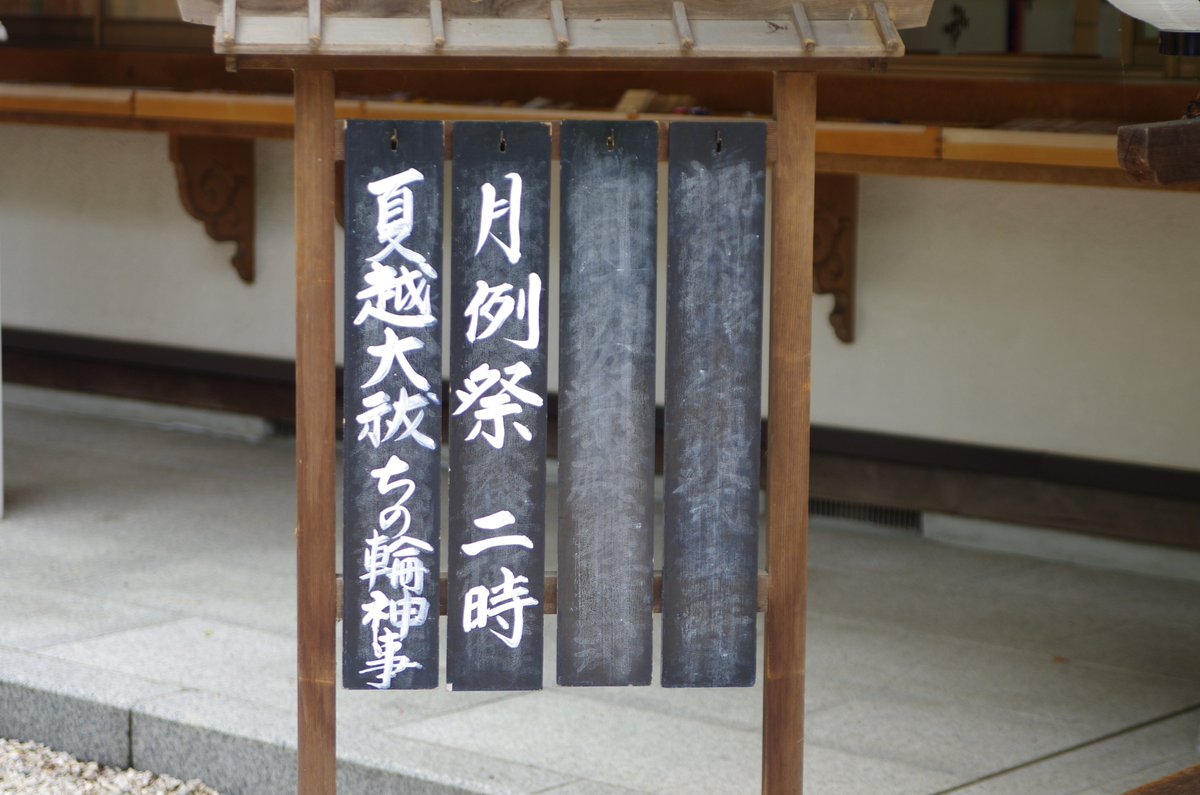 月例祭 二時
夏越大祓 ちの輪神事